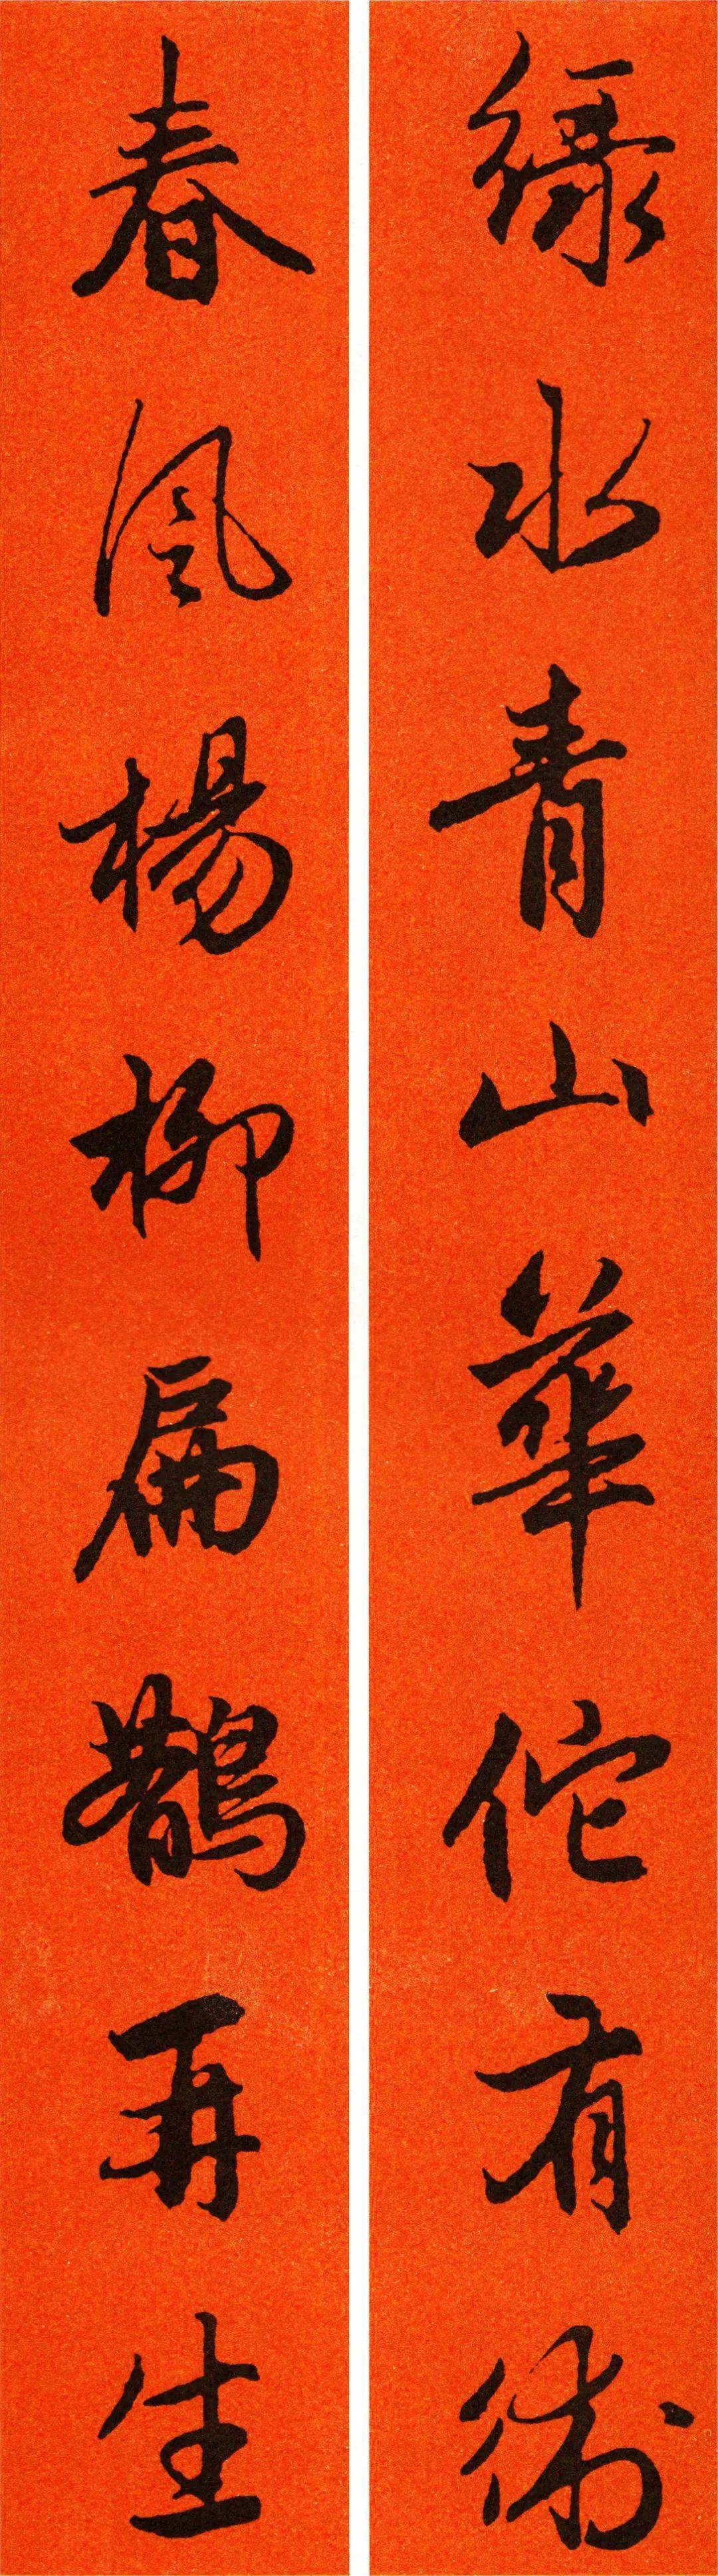 綠水青山華佗有術
春風楊柳扁鵲再生